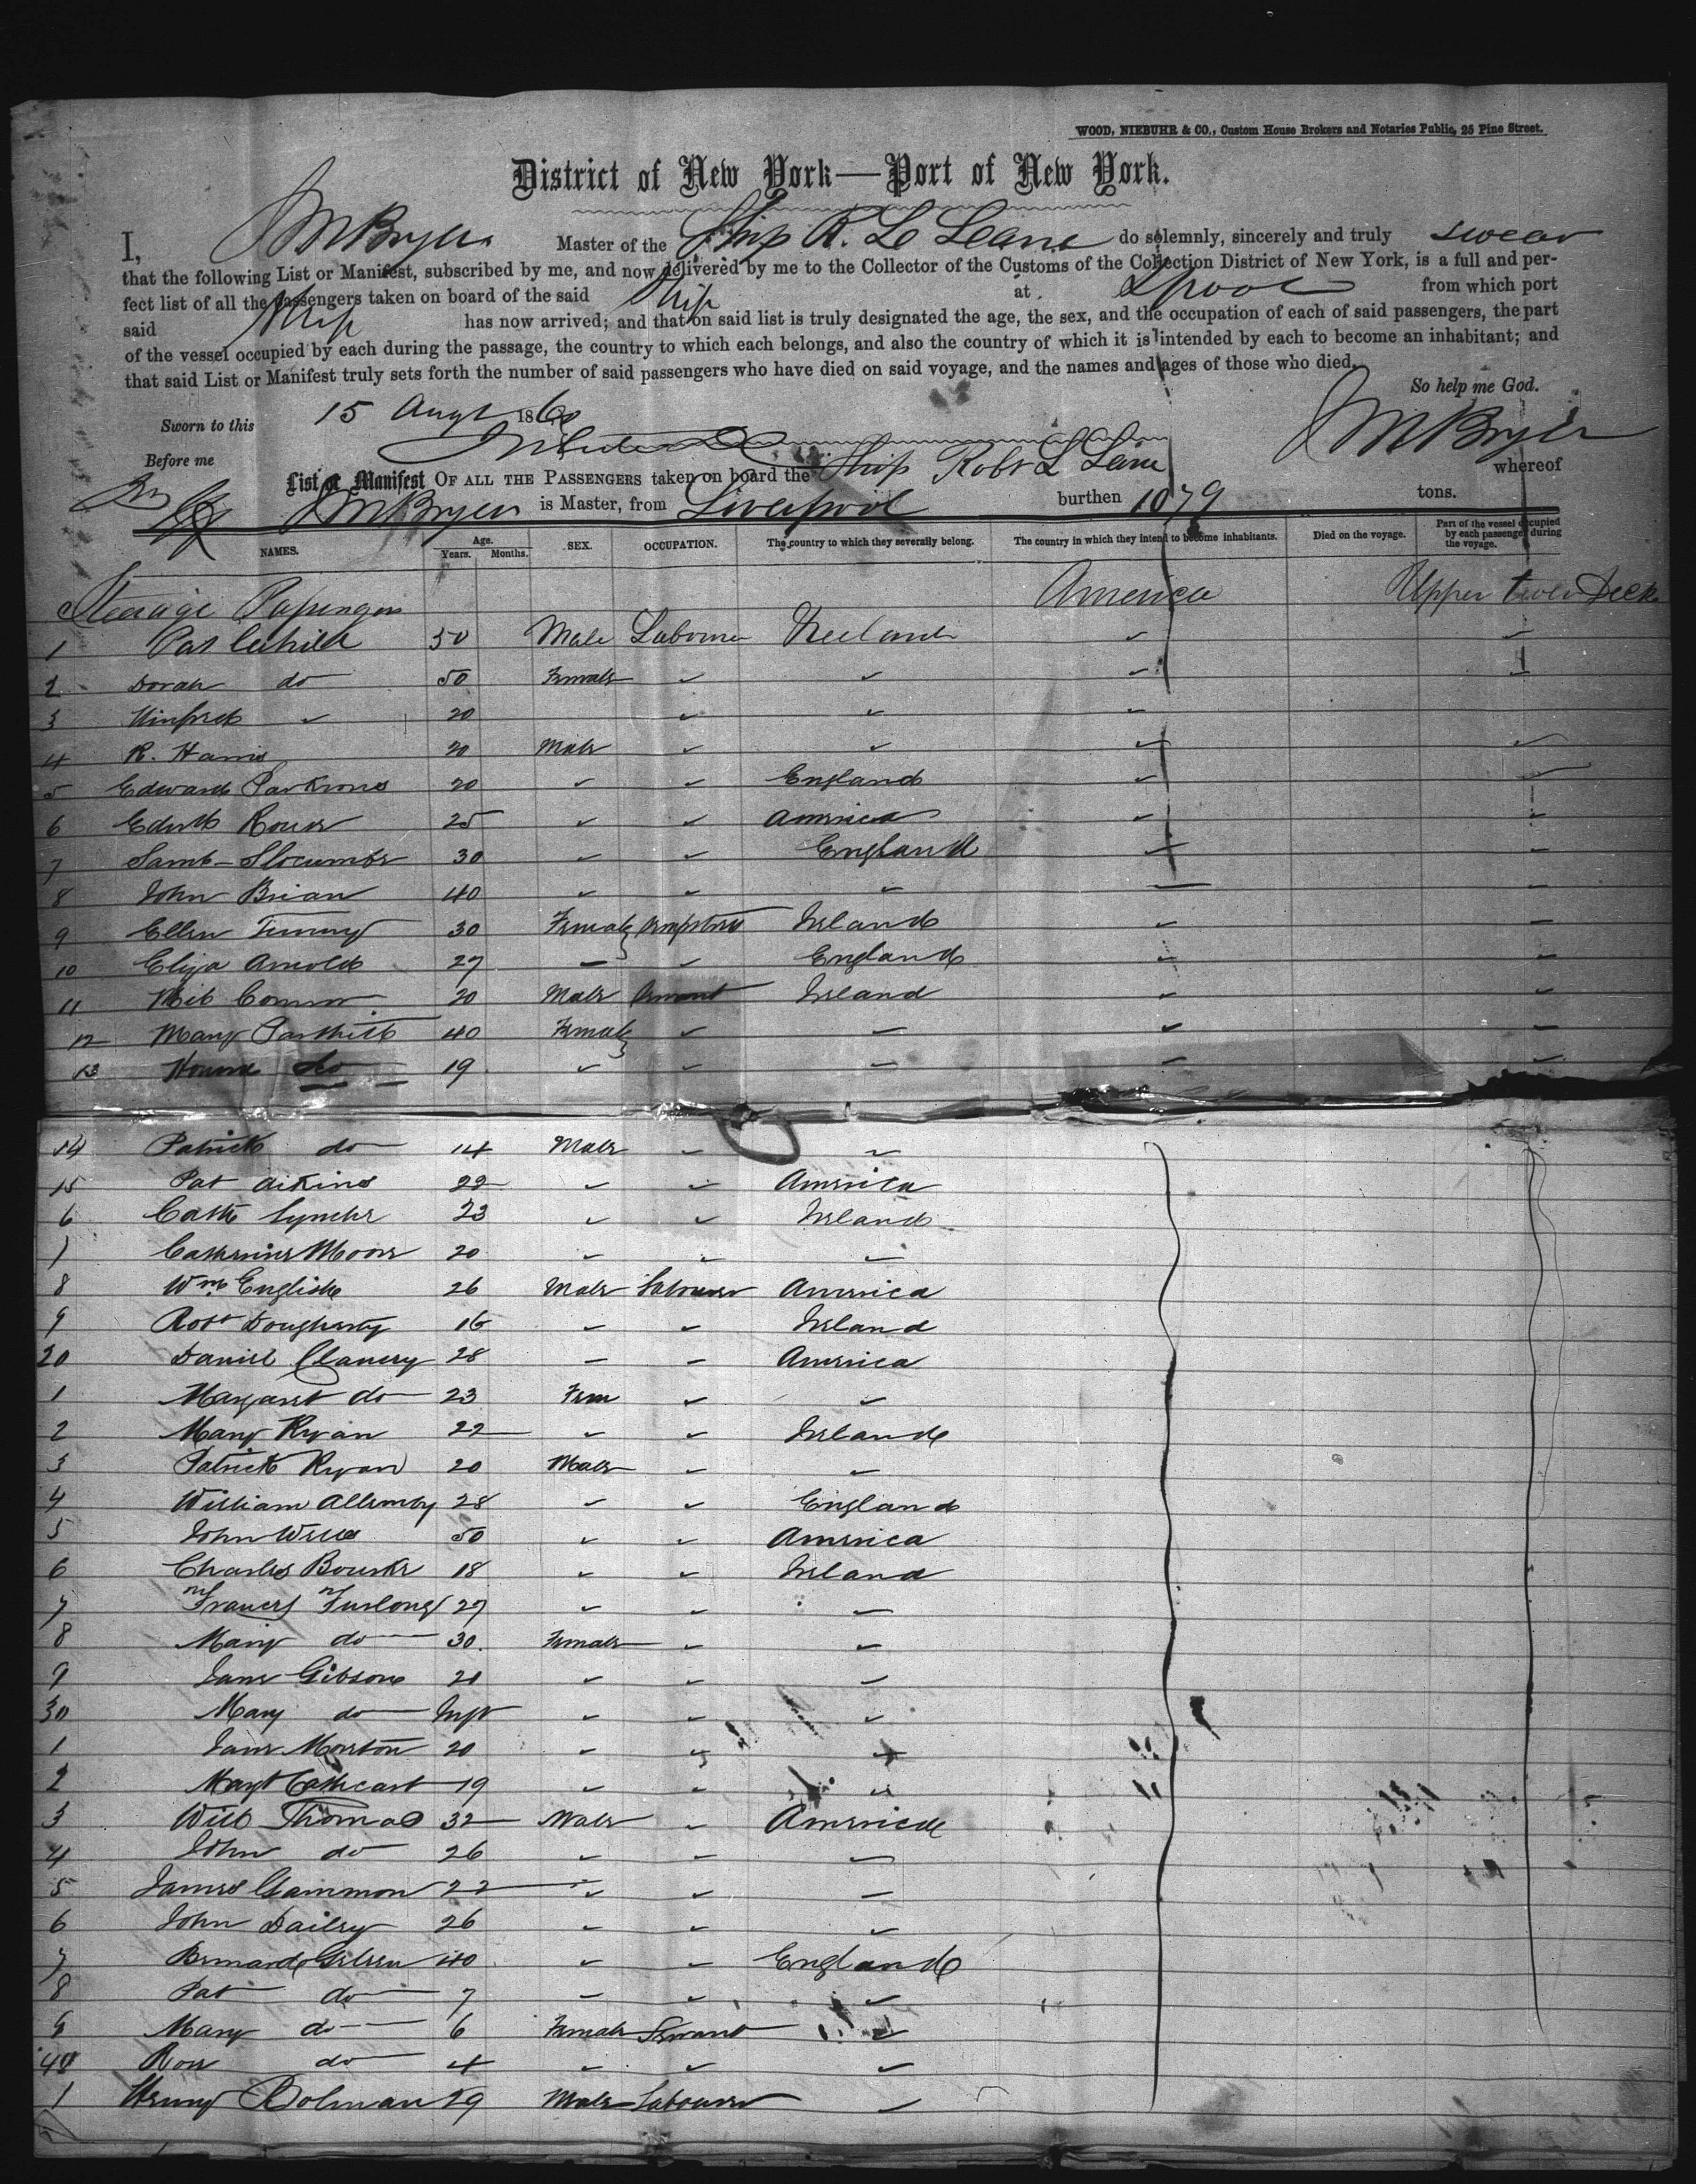 WOOD, NIEBUHR & CO., Custom House Brokers and Notaries Public, 25 Pine Street.
District of New York—Port of New York.
I, J M Bryer Master of the Ship R. L. Lane do solemnly, sincerely and truly swear
that the following List or Manifest, subscribed by me, and now delivered by me to the Collector of the Customs of the Collection District of New York, is a full and per-
fect list of all the passengers taken on board of the said Ship at Lpool from which port
said Ship has now arrived; and that on said list is truly designated the age, the sex, and the occupation of each of said passengers, the part
of the vessel occupied by each during the passage, the country to which each belongs, and also the country of which it is intended by each to become an inhabitant; and
that said List or Manifest truly sets forth the number of said passengers who have died on said voyage, and the names and ages of those who died.
So help me God.
Sworn to this 15 Augt 1860 J M Bryer
Before me
List or Manifest OF ALL THE PASSENGERS taken on board the Ship Robt L Lane whereof
J M Bryer is Master, from Liverpool burthen 1079 tons.
NAMES. Age. Years. Months. SEX. OCCUPATION. The country to which they severally belong. The country in which they intend to become inhabitants. Died on the voyage. Part of the vessel occupied by each passenger during the voyage.
Steerage Passengers America Upper tween Deck
1 Pat 50 Male Labourer Ireland
2 Dorah do 50 Female
3 Winfred 20
4 R. Harris 20 Male
5 Edward Parkins 20 England
6 25 America
7 Saml Slocumbe 30 England
8 John Brian 40
9 Ellen 30 Female Ireland
10 Eliza Arnold 27 England
11 Connor 20 Male Servant Ireland
12 Mary 40 Female
13 do 19
14 Patrick do 14 Male
15 Pat Aikins 22 America
6 Cath Lynche 23 Ireland
7 Catherine Moore 20
8 Wm English 26 Male Labourer America
9 Robt Dougherty 16 Ireland
20 Daniel Clancey 28 America
1 Margaret do 23 Fem
2 Mary Ryan 22 Ireland
3 Patrick Ryan 20 Male
4 William Allemby 28 England
5 John Wells 50 America
6 Charles Bourke 18 Ireland
7 Frances Furlong 27
8 Mary do 30 Female
9 Jane Gibson 20
30 Mary do Inft
1 Jane Morton 20
2 Margt Cathcart 19
3 Will Thomas 32 Male America
4 John do 26
5 James Gammon 22
6 John Dailey 26
7 Bernard 40 England
8 Pat do 7
9 Mary do 6 Female Servant
40 Rose do 4
1 Henry Bolman 29 Male Labourer